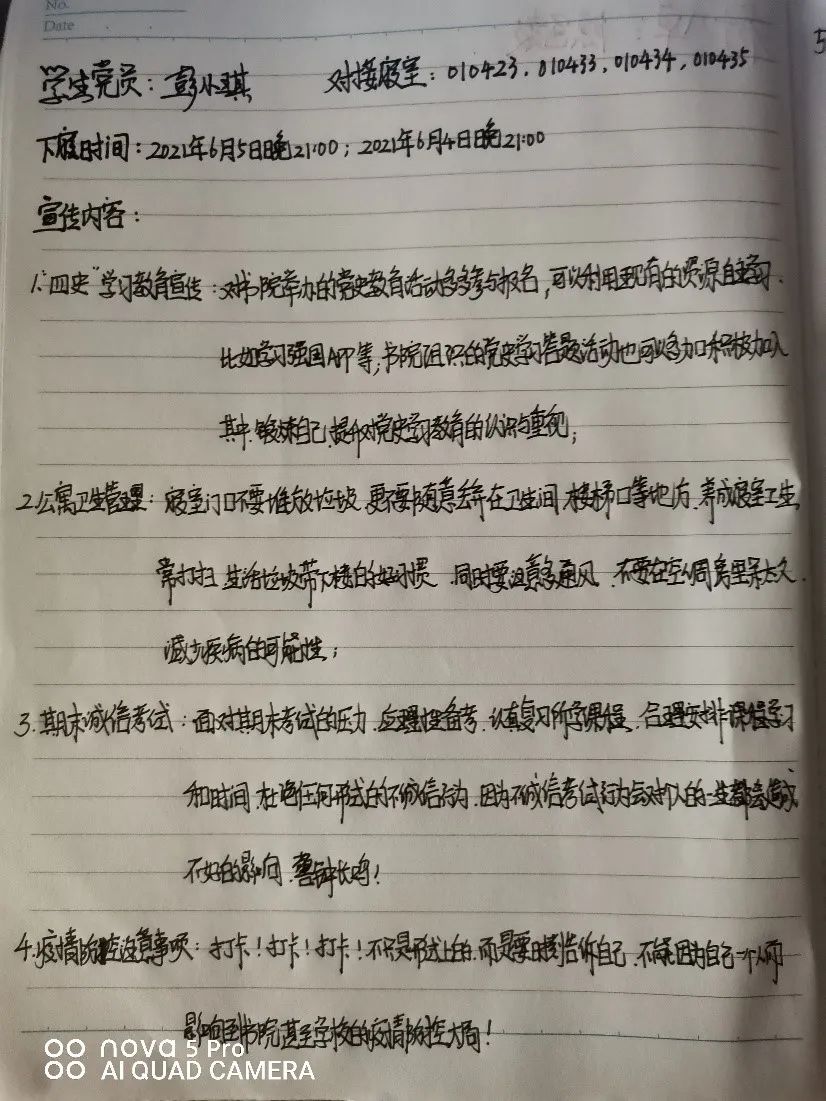 No.
Date
学生党员：彭小琪 对接寝室：010423，010433，010434，010435
下寝时间：2021年6月5日晚21:00；2021年6月4日晚21:00
宣传内容：
1.“四史”学习教育宣传：对书院举办的党史教育活动多多参与报名，可以利用现有的资源自主学习．
比如学习强国APP等，书院组织的党史学习答题活动也可以多加积极加入
其中，锻炼自己，提升对党史学习教育的认识与重视；
2.公寓卫生管理：寝室门口不要堆放垃圾，更不要随意丢弃在卫生间，楼梯口等地方，养成寝室卫生
常打扫，生活垃圾带下楼的好习惯，同时要注意多通风，不要在空调房里呆太久，
减少疾病的可能性；
3.期末诚信考试：面对期末考试的压力，应理性备考，认真复习所学课程，合理安排课程学习
和时间，杜绝任何形式的不诚信行为，因为不诚信考试行为会对个人的一生都会造成
不好的影响，警钟长鸣！
4.疫情防控注意事项：打卡！打卡！打卡！不只是形式上的，而是要时刻告诉自己，不能因为自己一个人而
影响到书院甚至学校的疫情防控大局！
nova 5 Pro
AI QUAD CAMERA